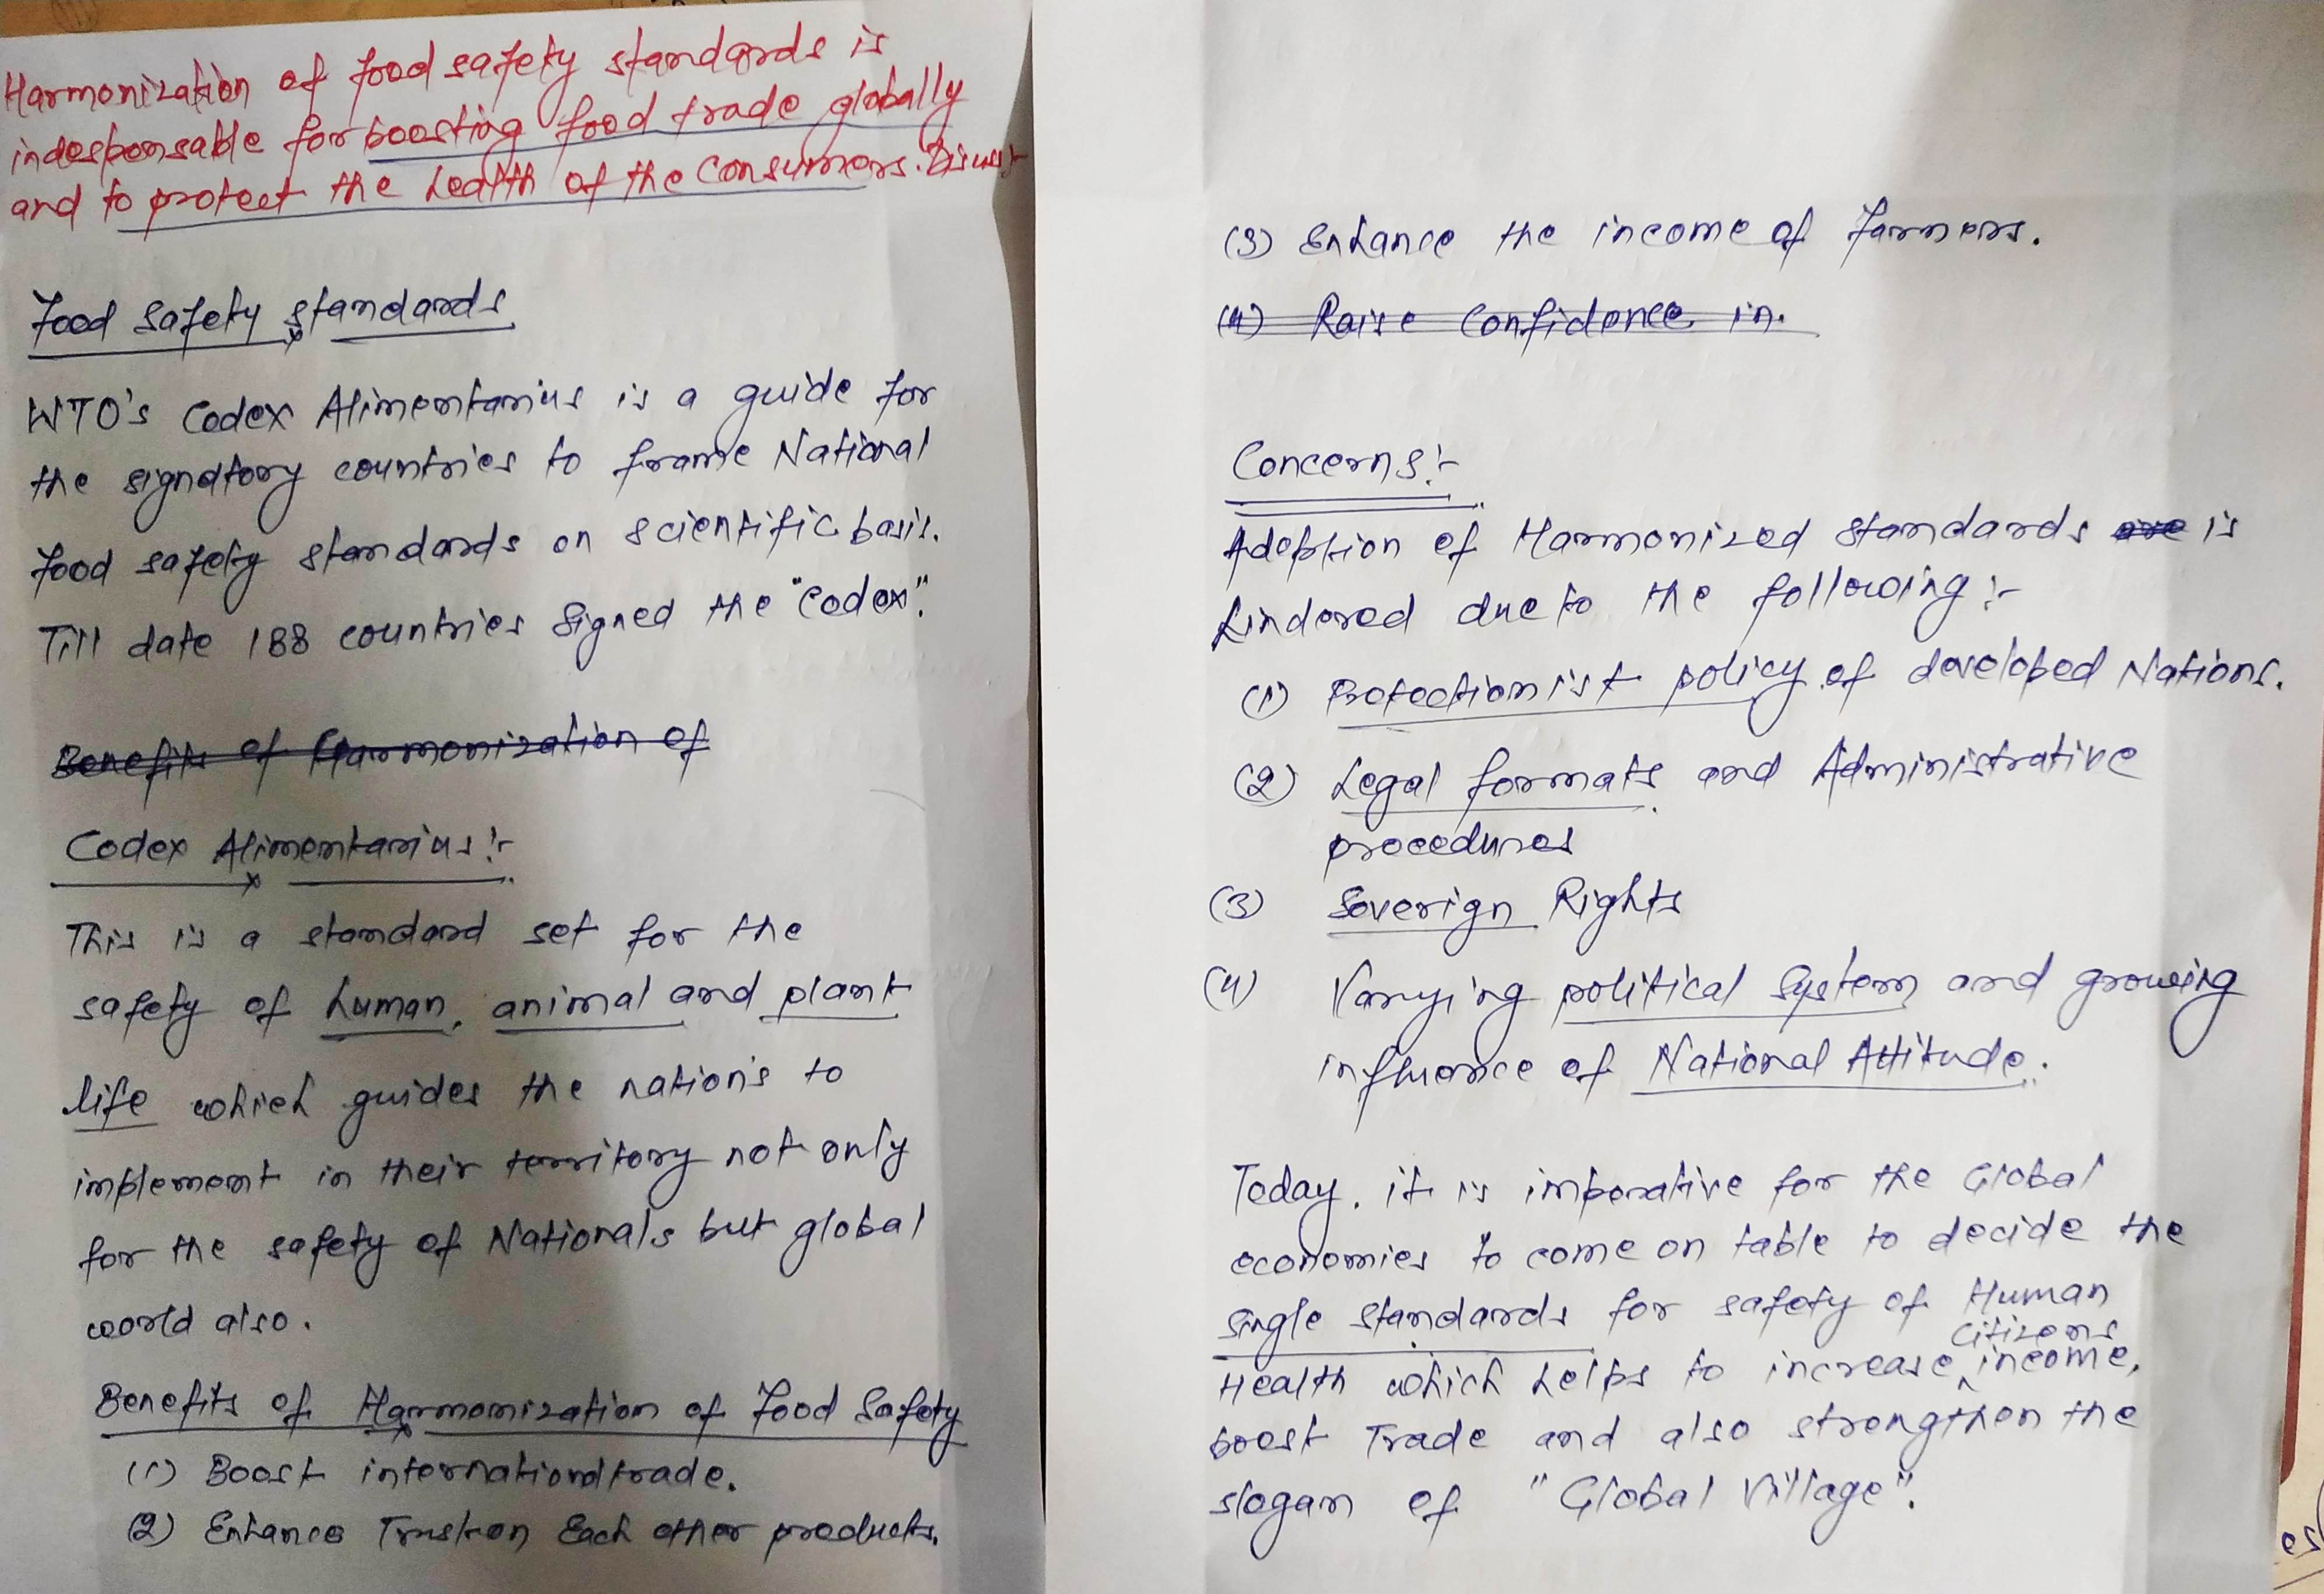 Harmonization of food safety standards is
indespensable for boosting food trade globally
and to protect the health of the consumers. Discuss:-
Food Safety Standards
WTO's Codex Alimentarius is a guide for
the signatory countries to frame National
food safety standards on scientific basis.
Till date 188 countries signed the "codex".
Benefits of Harmonization of
Codex Alimentarius:-
This is a standard set for the
safety of human, animal and plant
life which guides the nation's to
implement in their territory not only
for the safety of Nationals but global
world also.
Benefits of Harmonization of Food Safety
(1) Boost international trade.
(2) Enhance Trust on Each other products.
(3) Enhance the income of farmers.
(4) Raise Confidence in.
Concerns:-
Adoption of Harmonized Standards are is
hindered due to the following:-
(1) Protectionist policy of developed Nations.
(2) Legal formats and Administrative
procedures
(3) Soverign Rights
(4) Varying political system and growing
influence of National Attitude.
Today, it is imperative for the Global
economies to come on table to decide the
single standards for safety of Human
Citizens
Health which helps to increase income,
boost Trade and also strengthen the
slogan of "Global Village".
es